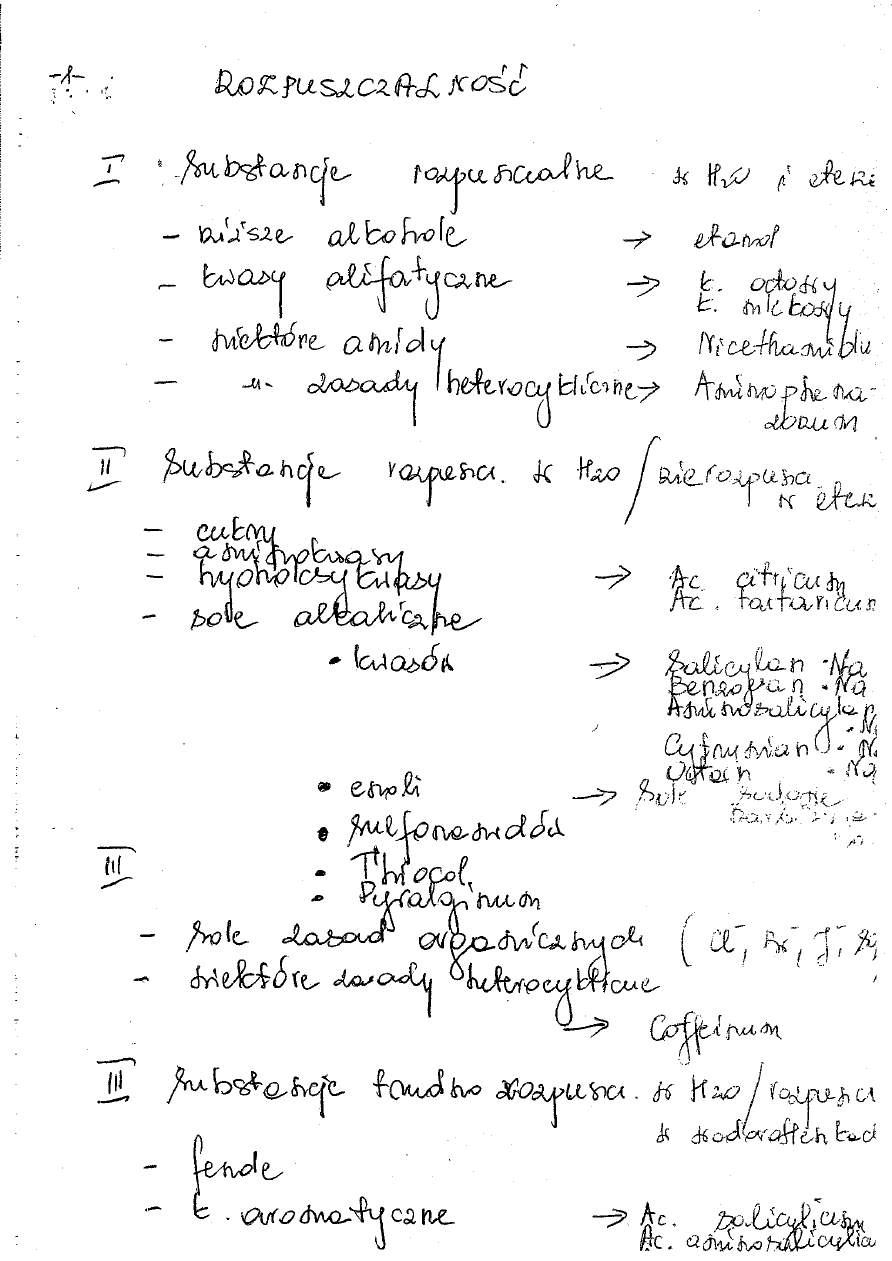 -1-
ROZPUSZCZALNOŚĆ
I Substancje rozpuszczalne w H2O i eterze
- niższe alkohole → etanol
- kwasy alifatyczne → k. octowy
k. mlekowy
- niektóre amidy → Nicethamidu
- -"- zasady heterocykliczne → Aminophena-
zonum
II Substancje rozpuszcz. w H2O / nierozpuszcz.
w eter
- cukry
- aminokwasy
- hydroksykwasy → Ac. citricum
Ac. tartaricum
- sole alkaliczne
• kwasów → Salicylan ·Na
Benzoesan ·Na
Aminosalicylan
·N
Cytrynian ·N
Octan ·Na
• enoli → Sole sodowe
• sulfonamidów
III • Thiocol,
• Pyralginum
- sole zasad organicznych (Cl⁻, Br⁻, J⁻,
- niektóre zasady heterocykliczne
→ Coffeinum
III Substancje trudno rozpuszcz. w H2O / rozpuszcz
w wodorotlenkach
- fenole
- k. aromatyczne → Ac. salicylicum
Ac. aminosalicylic